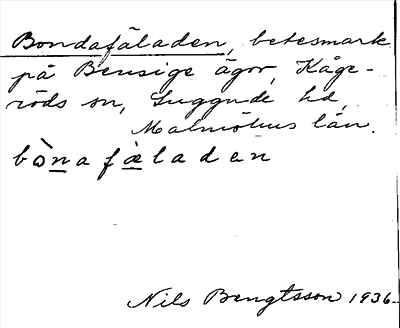 Bondafäladen, betesmark
på Bensige ägor, Kåge-
röds sn, Luggude hd,
Malmöhus län.
bònafæ̀ladan
Nils Bengtsson 1936.